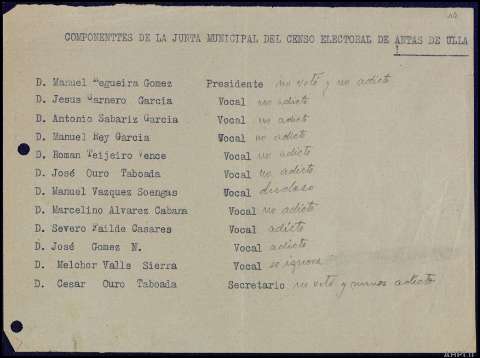 COMPONENTTES DE LA JUNTA MUNICIPAL DEL CENSO ELECTORAL DE ANTAS DE ULLA
D. Manuel Regueira Gomez Presidente no votó y no adicto
D. Jesus Garnero Garcia Vocal no adicto
D. Antonio Sabariz Garcia Vocal no adicto
D. Manuel Rey Garcia Vocal no adicto
D. Roman Teijeiro Vence Vocal no adicto
D. José Ouro Taboada Vocal no adicto
D. Manuel Vazquez Soengas Vocal dudoso
D. Marcelino Alvarez Cabana Vocal no adicto
D. Severo Failde Casares Vocal adicto
D. José Gomez N. Vocal adicto
D. Melchor Valle Sierra Vocal se ignora
D. Cesar Ouro Taboada Secretario no votó y menos adicto